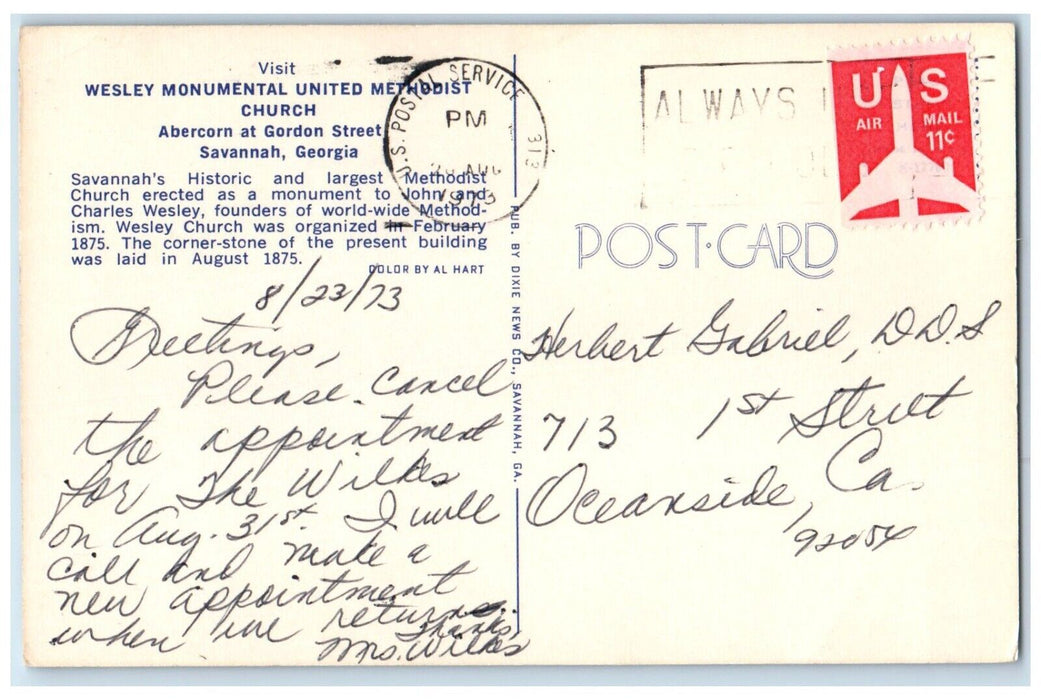 Visit
WESLEY MONUMENTAL UNITED METHODIST
CHURCH
Abercorn at Gordon Street
Savannah, Georgia
Savannah's Historic and largest Methodist
Church erected as a monument to John and
Charles Wesley, founders of world-wide Method-
ism. Wesley Church was organized in February
1875. The corner-stone of the present building
was laid in August 1875.
COLOR BY AL HART
8/23/73
Greetings,
Please cancel
the appointment
for The Wilkes
on Aug. 31st. I will
call and make a
new appointment
when we return.
Thanks,
Mrs. Wilkes
PUB. BY DIXIE NEWS CO., SAVANNAH, GA.
U.S. POSTAL SERVICE 313
PM
AUG
1973
ALWAYS
US
AIR MAIL
11¢
POST·CARD
Herbert Gabriel, D.D.S
713 1st Street
Oceanside, Ca.
92054